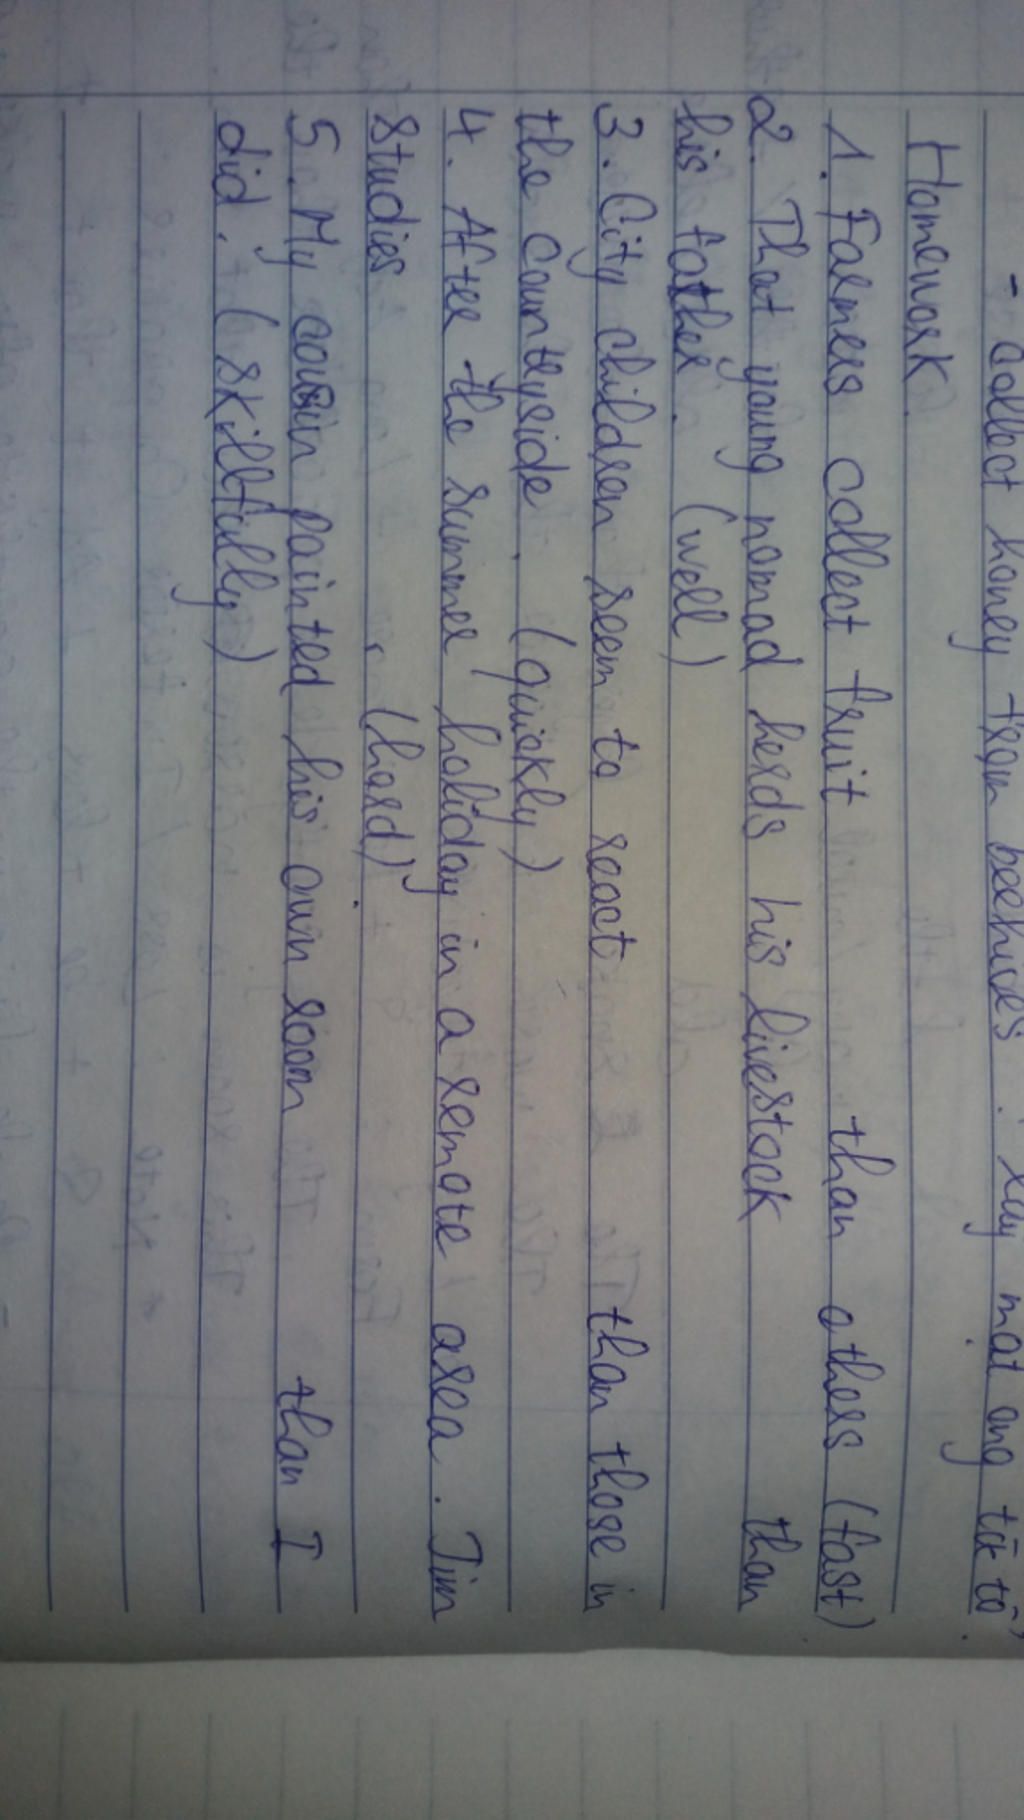 - collect honey from beehives : lấy mật ong từ tổ
Homework
1. Farmers collect fruit than others (fast)
2. That young nomad herds his livestock than
his father. (well)
3. City children seem to react than those in
the countryside. (quickly)
4. After the summer holiday in a remote area. Tim
studies . (hard)
5. My cousin painted his own room than I
did. (skillfully)